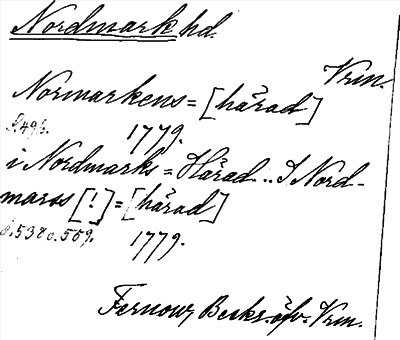 Nordmark hd.
Vrm.
Normarkens = [härad]
s. 496. 1779.
i Nordmarks = Härad .. I Nord-
marss [!] = [härad]
s. 538 o. 559. 1779.
Fernow, Beskr. öfv. Vrm.